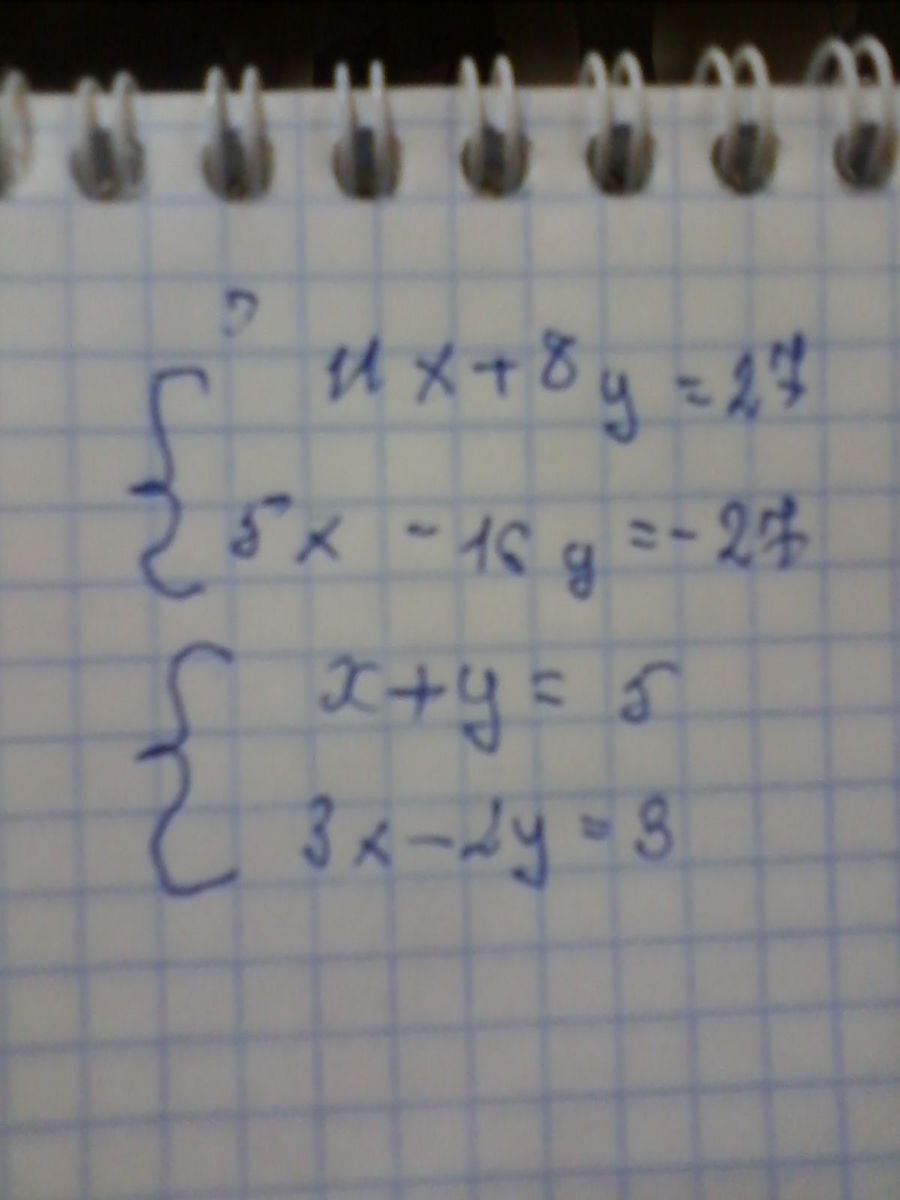 11x + 8y = 27
5x - 16y = -27
x + y = 5
3x - 2y = 3